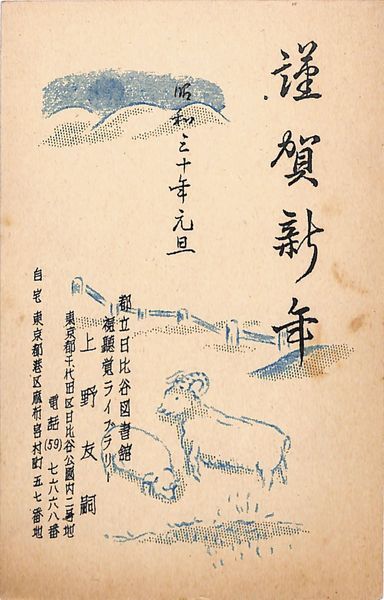 謹賀新年
昭和三十年元旦
都立日比谷図書館
視聴覚ライブラリー
上野友嗣
東京都千代田区日比谷公園内二号地
電話(59)七六六八番
自宅 東京都港区麻布宮村町五七番地